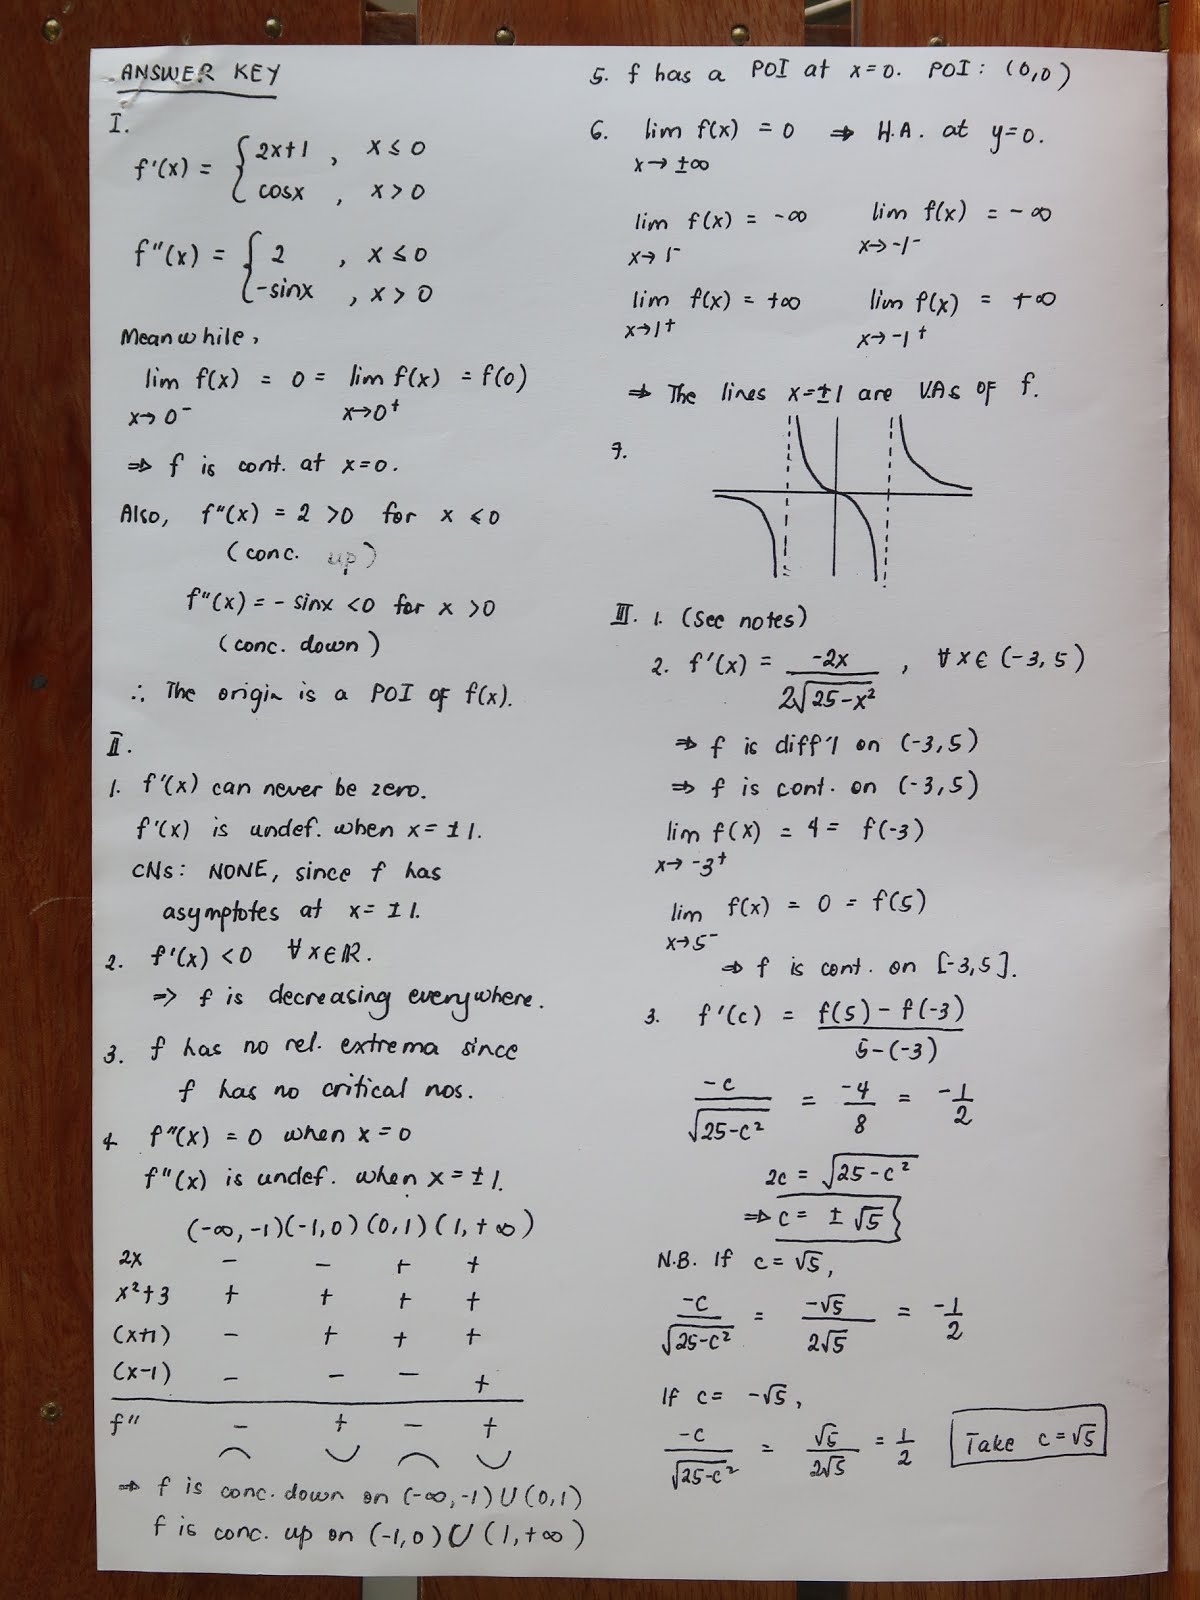 ANSWER KEY
I.
f'(x) = { 2x+1 , x ≤ 0
cosx , x > 0
f''(x) = { 2 , x ≤ 0
-sinx , x > 0
Meanwhile,
lim f(x) = 0 = lim f(x) = f(0)
x→0⁻ x→0⁺
⇒ f is cont. at x=0.
Also, f''(x) = 2 >0 for x ≤0
(conc. up)
f''(x) = - sinx <0 for x >0
(conc. down)
∴ The origin is a POI of f(x).
II.
1. f'(x) can never be zero.
f'(x) is undef. when x = ±1.
CNs: NONE, since f has
asymptotes at x= ±1.
2. f'(x) <0 ∀x∈ℝ.
⇒ f is decreasing everywhere.
3. f has no rel. extrema since
f has no critical nos.
4 f''(x) = 0 when x = 0
f''(x) is undef. when x = ±1.
(-∞, -1)(-1, 0)(0, 1)(1, +∞)
2x - - + +
x²+3 + + + +
(x+1) - + + +
(x-1) - - - +
f'' - + - +
⇒ f is conc. down on (-∞, -1) ∪ (0, 1)
f is conc. up on (-1, 0) ∪ (1, +∞)
5. f has a POI at x=0. POI: (0,0)
6. lim f(x) = 0 ⇒ H.A. at y=0.
x→±∞
lim f(x) = -∞ lim f(x) = -∞
x→1⁻ x→-1⁻
lim f(x) = +∞ lim f(x) = +∞
x→1⁺ x→-1⁺
⇒ The lines x=±1 are V.As of f.
7.
III. 1. (See notes)
2. f'(x) = -2x / 2√(25-x²) , ∀x∈(-3, 5)
⇒ f is diff'l on (-3, 5)
⇒ f is cont. on (-3, 5)
lim f(x) = 4 = f(-3)
x→-3⁺
lim f(x) = 0 = f(5)
x→5⁻
⇒ f is cont. on [-3, 5].
3. f'(c) = f(5) - f(-3) / 5-(-3)
-c / √(25-c²) = -4/8 = -1/2
2c = √(25-c²)
⇒ c = ±√5
N.B. If c = √5,
-c / √(25-c²) = -√5 / 2√5 = -1/2
If c = -√5,
-c / √(25-c²) = √5 / 2√5 = 1/2 Take c=√5